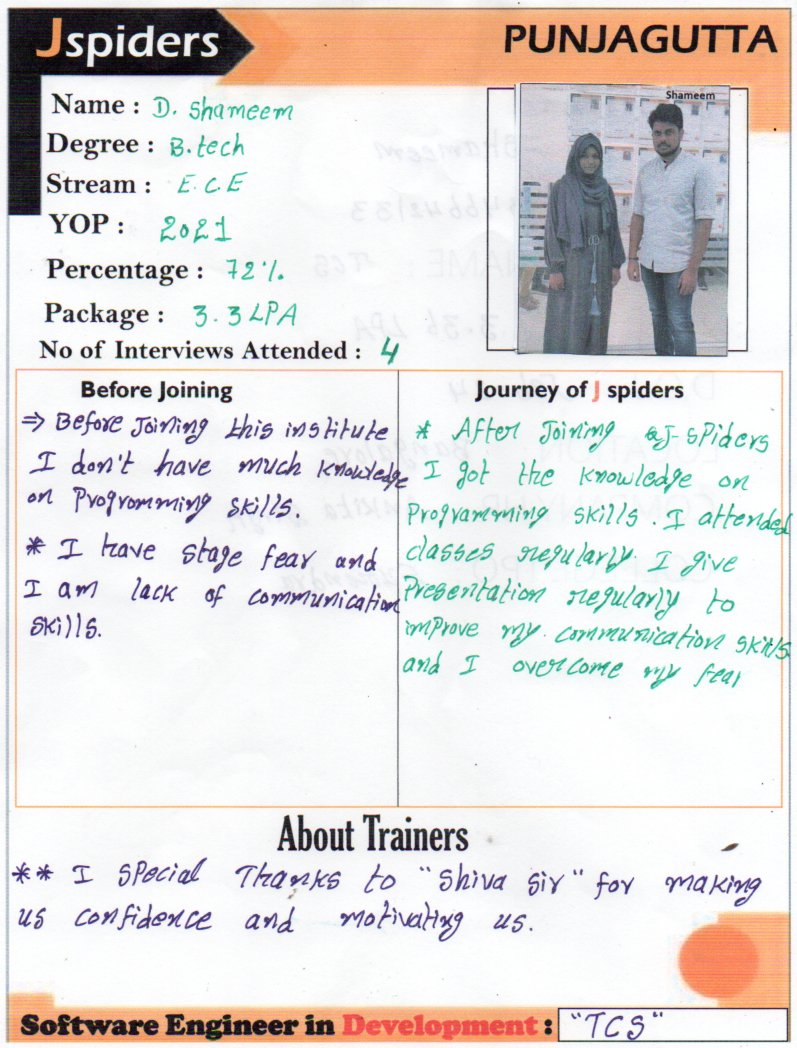 Jspiders
PUNJAGUTTA
Name : D. Shameem
Degree : B.tech
Stream : E.C.E
YOP : 2021
Percentage : 72%
Package : 3.3 LPA
No of Interviews Attended : 4
Shameem
Before Joining
⇒ Before Joining this institute
I don't have much knowledge
on Programming skills.
* I have stage fear and
I am lack of communication
skills.
Journey of J spiders
* After Joining J-spiders
I got the knowledge on
Programming skills. I attended
classes regularly. I give
Presentation regularly to
improve my communication skills
and I overcome my fear
About Trainers
** I special Thanks to "Shiva Sir" for making
us confidence and motivating us.
Software Engineer in Development : "TCS"